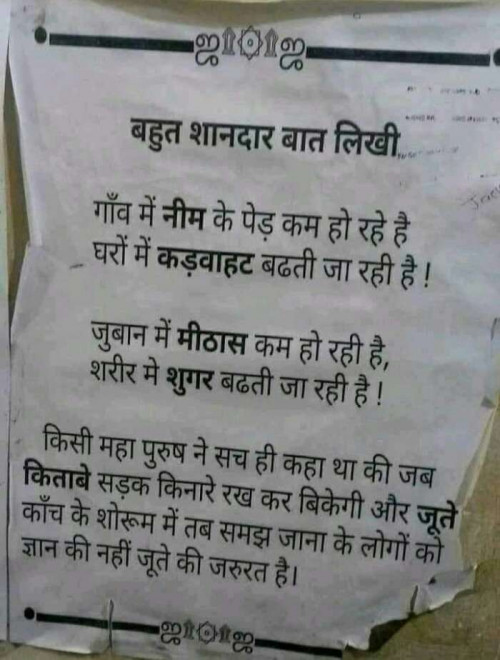 बहुत शानदार बात लिखी
गाँव में नीम के पेड़ कम हो रहे है
घरों में कड़वाहट बढती जा रही है !
जुबान में मीठास कम हो रही है,
शरीर मे शुगर बढती जा रही है !
किसी महा पुरुष ने सच ही कहा था की जब
किताबे सड़क किनारे रख कर बिकेगी और जूते
काँच के शोरूम में तब समझ जाना के लोगों को
ज्ञान की नहीं जूते की जरुरत है।